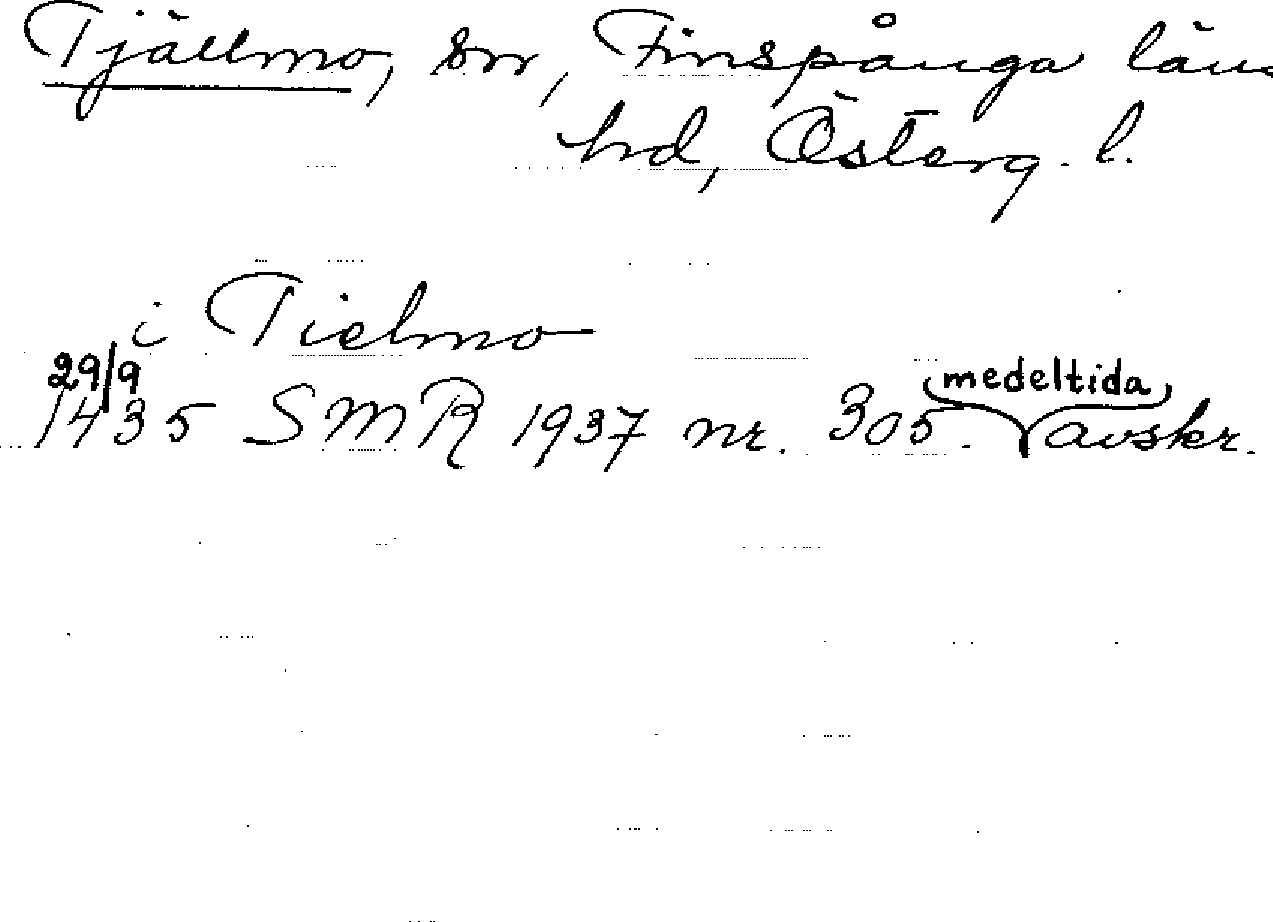 Tjällmo, sn, Finspånga läns
hd, Österg. l.
i Tielmo
29/9
1435 SMR 1937 nr. 305. medeltida avskr.